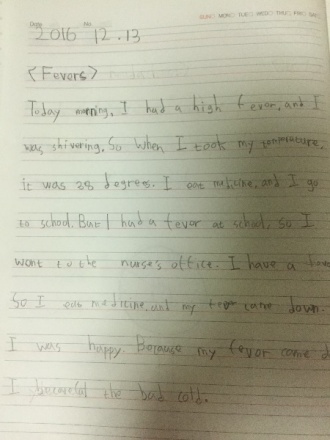 Date No. SUN MON TUE WED THU FRI SAT
2016 12.13
<Fevors>
Today morning, I had a high fevor, and I
was shivering. So when I took my temperature,
it was 38 degrees. I eat midicine, and I go
to school. But I had a fevor at school, so I
went to the nurse's office. I have a
So I eat medicine, and my fevor came down.
I was happy. Because my fevor came d
I the bad cold.